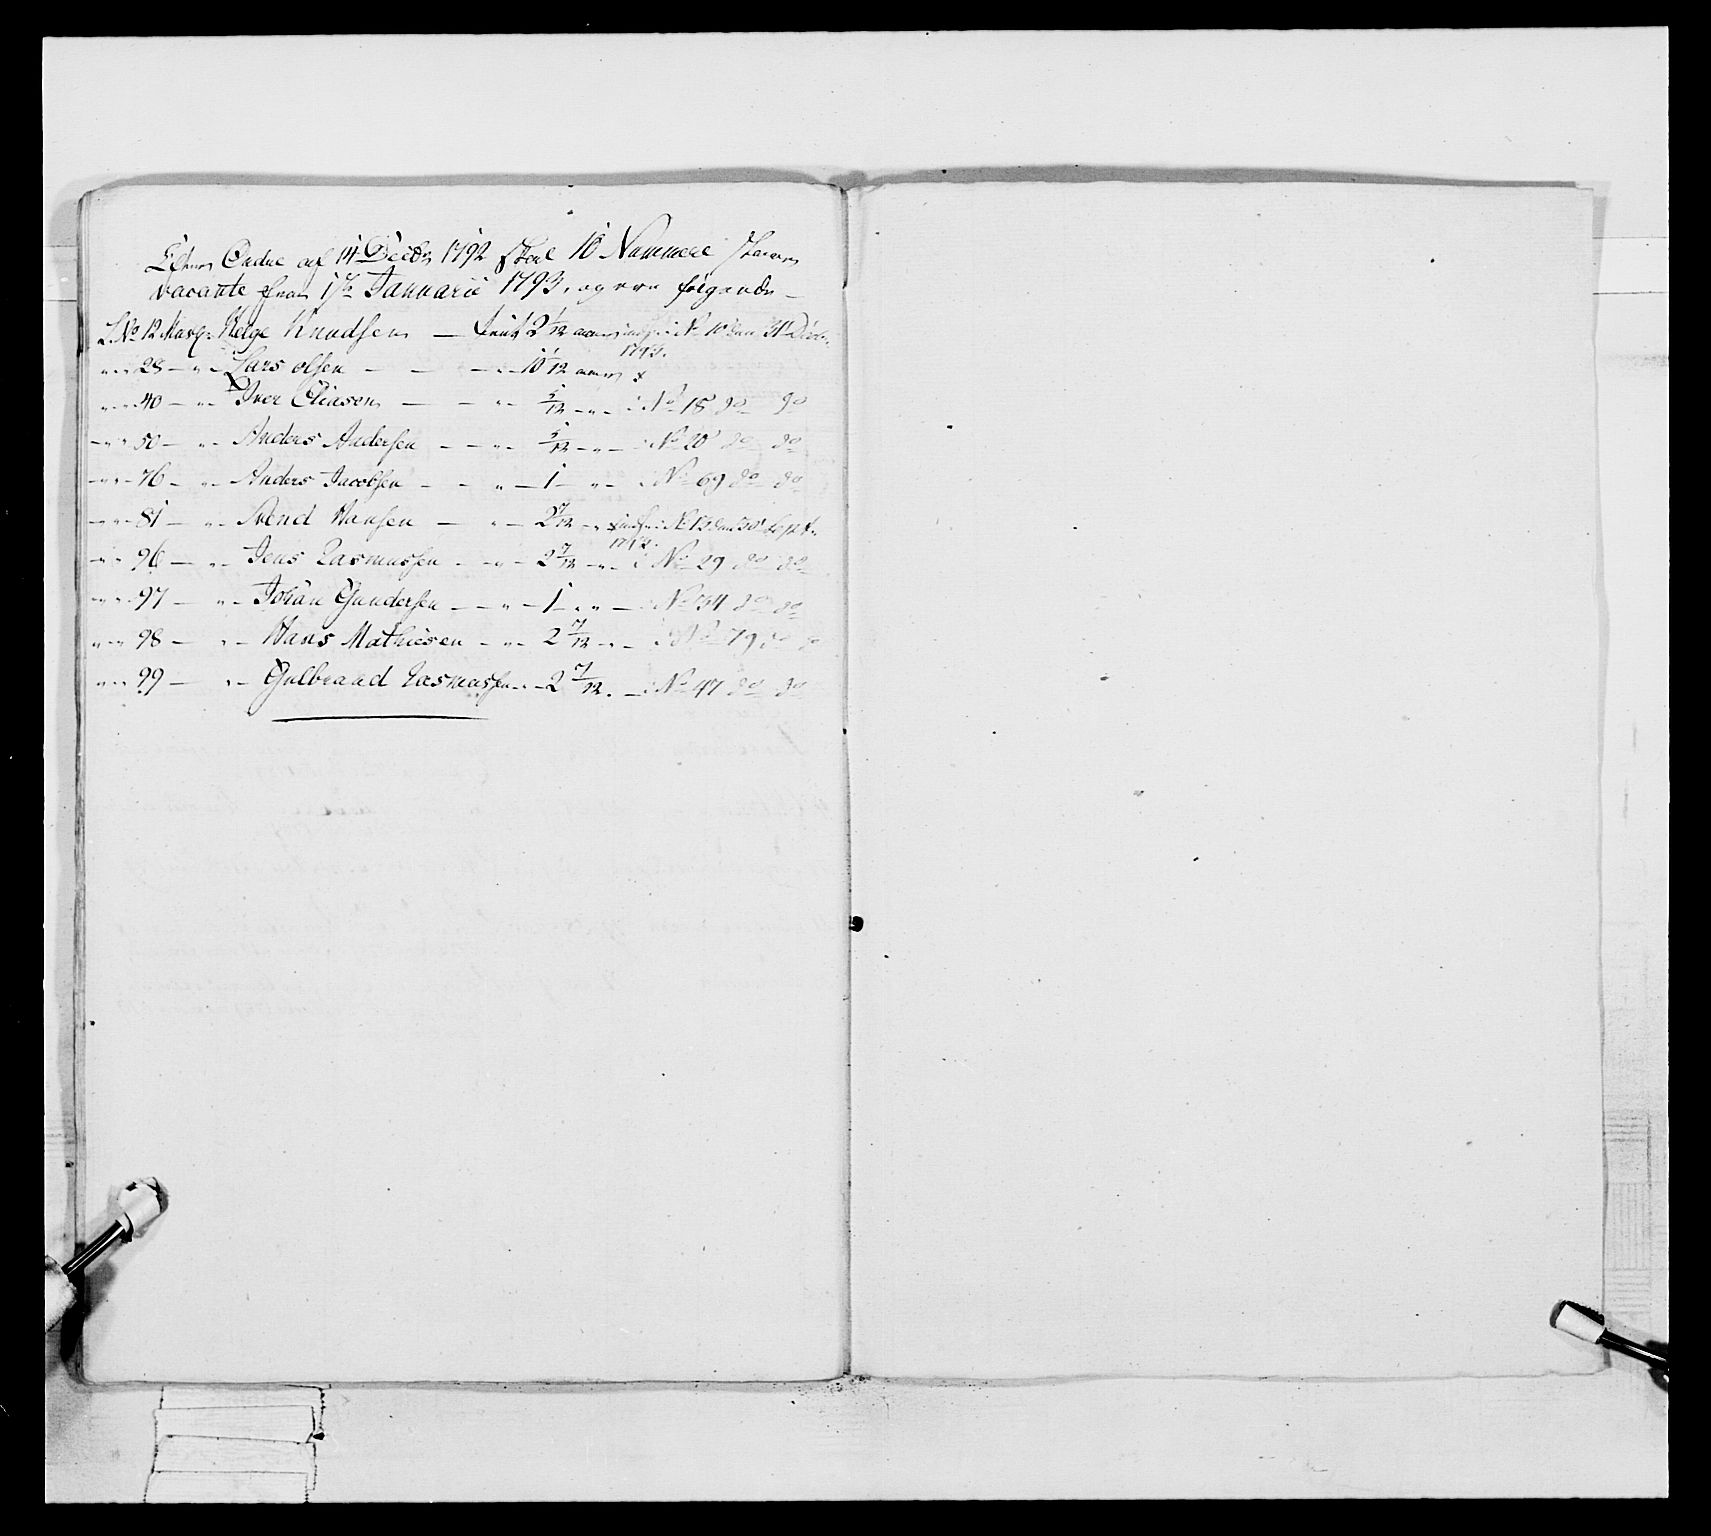 Efter Ordre af 14 Decbr 1792 skal 10 Nummere staae
vacante fra 1ste Januarii 1793, og ere følgende
L. No 12 Musq: Helge Knudsen — tient 2 1/12 aar indf: i No 10 den 31 Decbr
1793.
" " 28 — " — Lars Olsen — — — " — 10 1/12 aar
" " 40 — " — Iver Eliasen — — " — 5/12 — " — i No 18 do do
" " 50 — " — Anders Andersen — — " — 5/12 — " — i No 20 do do
" " 76 — " — Anders Jacobsen — — " — 1 — " — i No 69 do do
" " 81 — " — Svend Hansen — " — 2 7/12 — " indf: i No 13 den 30 Sept.
1793.
" " 96 — " — Jens Rasmussen — " — 2 7/12 — " — i No 29 do do
" " 97 — " — Johan Gundersen — — " — 1 — " " — i No 34 do do
" " 98 — " — Hans Mathiesen — " — 2 7/12 — " — i No 79 do do
" " 99 — " — Gulbrand Rasmussen — " — 2 7/12 . — i No 47 do do